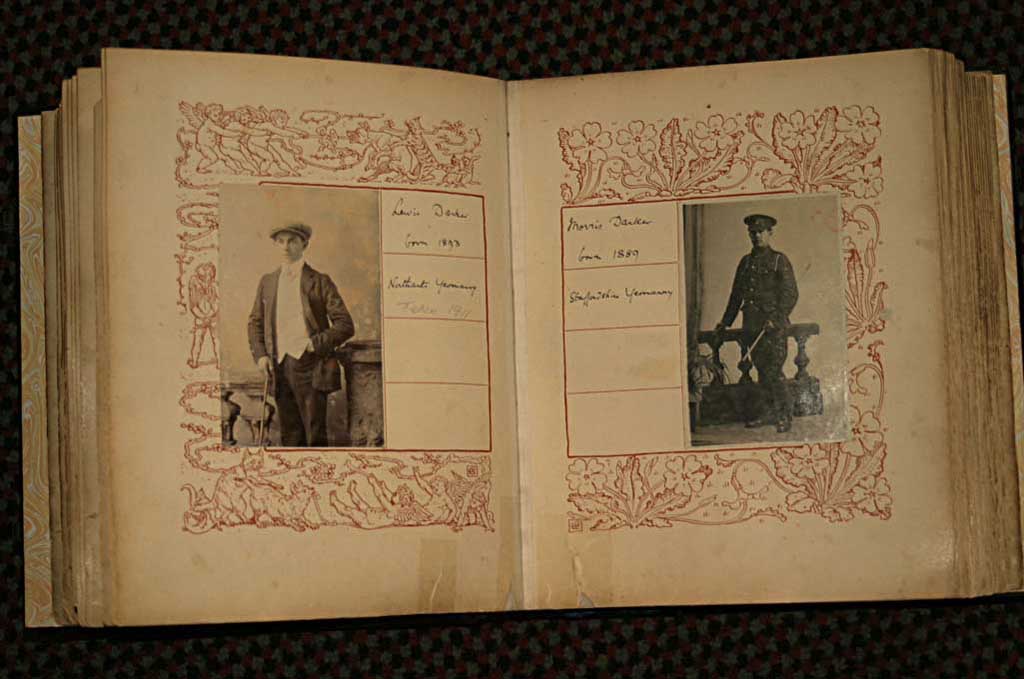 Lewis Darker
born 1893
Northants Yeomanry
Taken 1911
Morris Darker
born 1889
Staffordshire Yeomanry